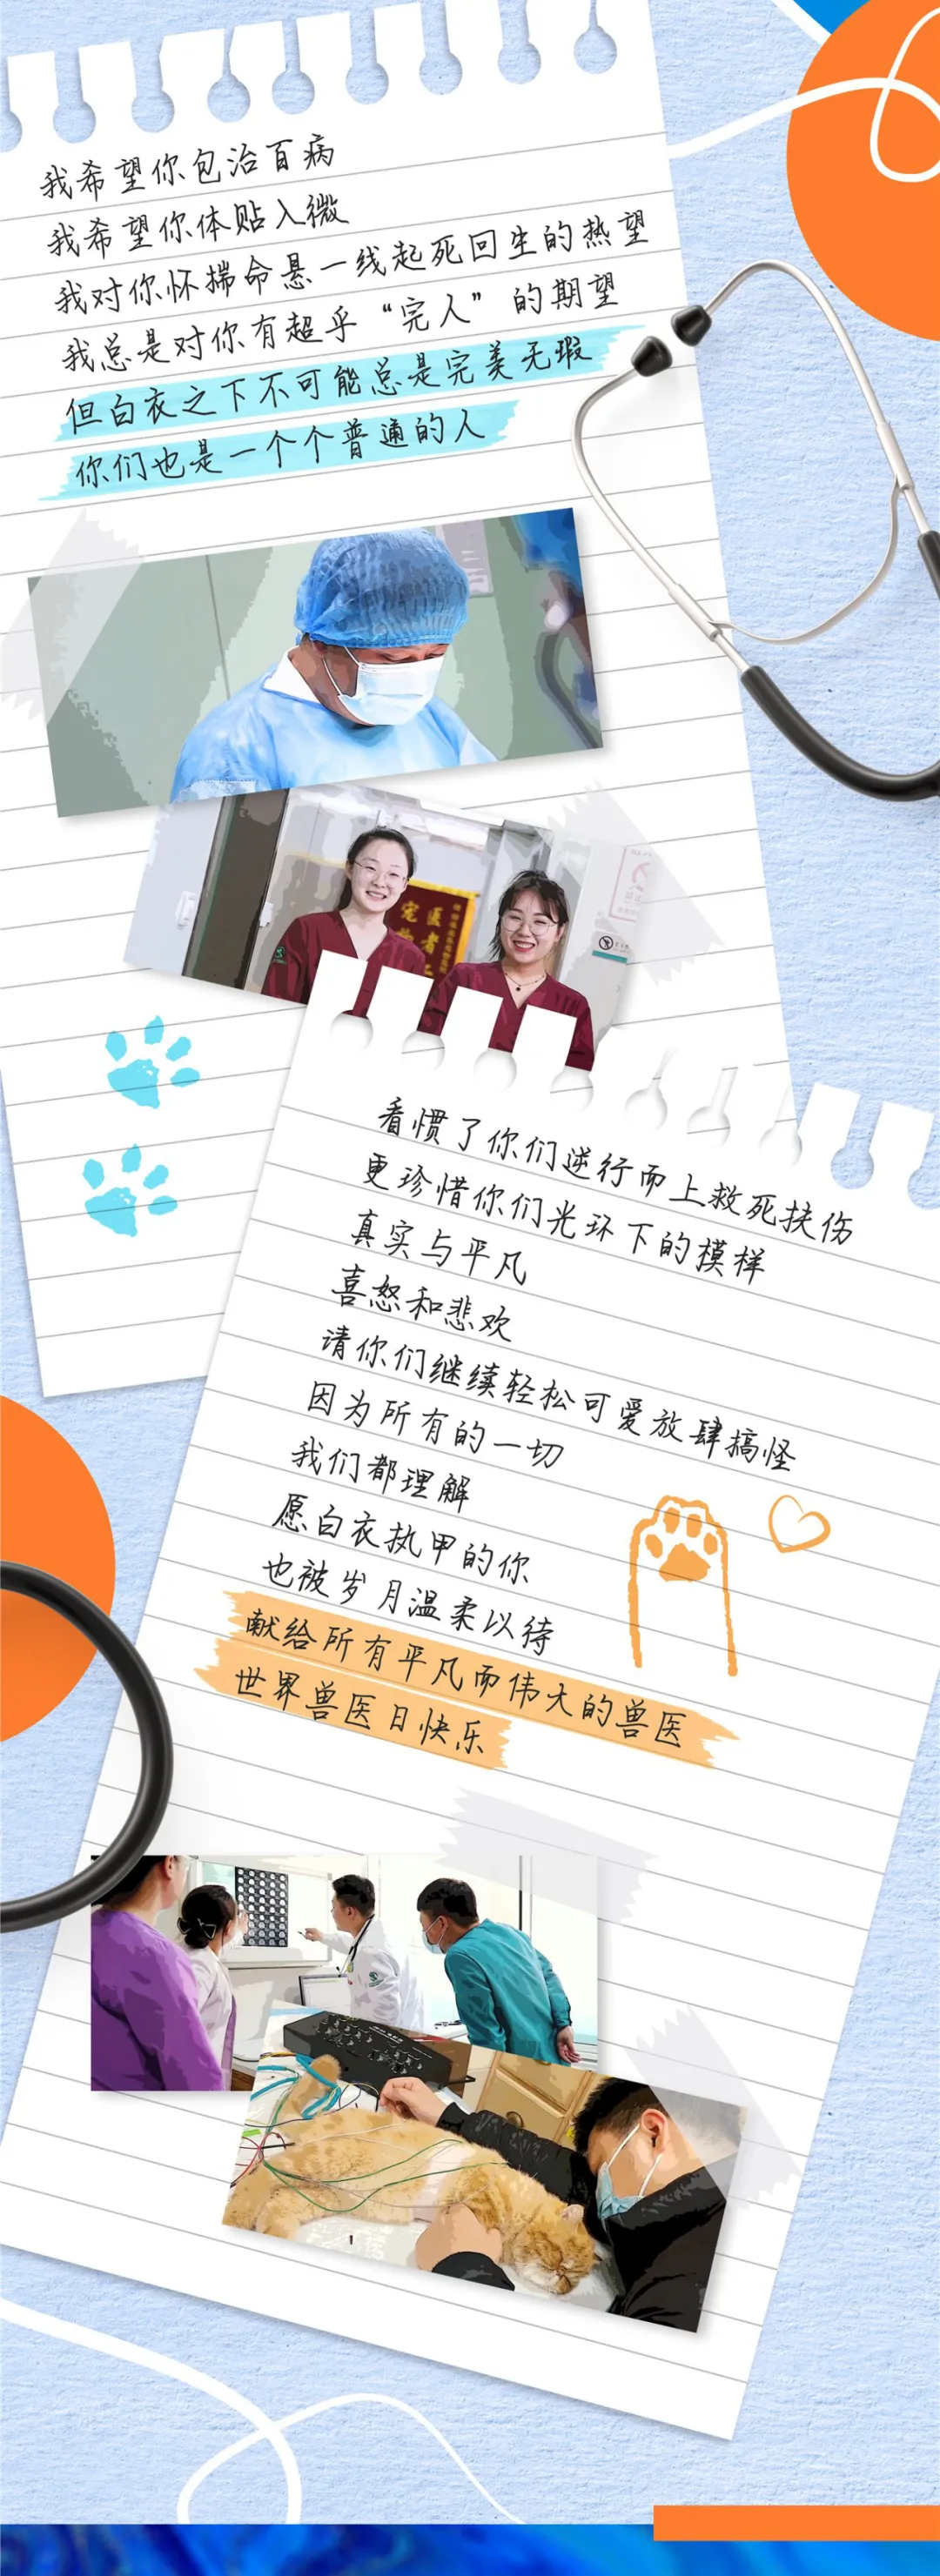 我希望你包治百病
我希望你体贴入微
我对你怀揣命悬一线起死回生的热望
我总是对你有超乎“完人”的期望
但白衣之下不可能总是完美无瑕
你们也是一个个普通的人
医者
宠物
看惯了你们逆行而上救死扶伤
更珍惜你们光环下的模样
真实与平凡
喜怒和悲欢
请你们继续轻松可爱放肆搞怪
因为所有的一切
我们都理解
愿白衣执甲的你
也被岁月温柔以待
献给所有平凡而伟大的兽医
世界兽医日快乐